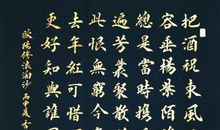 把酒祝東風
容垂楊紫陌
總是當時攜
遍芳叢聚散
此恨無窮今
去年紅可惜
更好知與誰
歐陽修浪淘沙